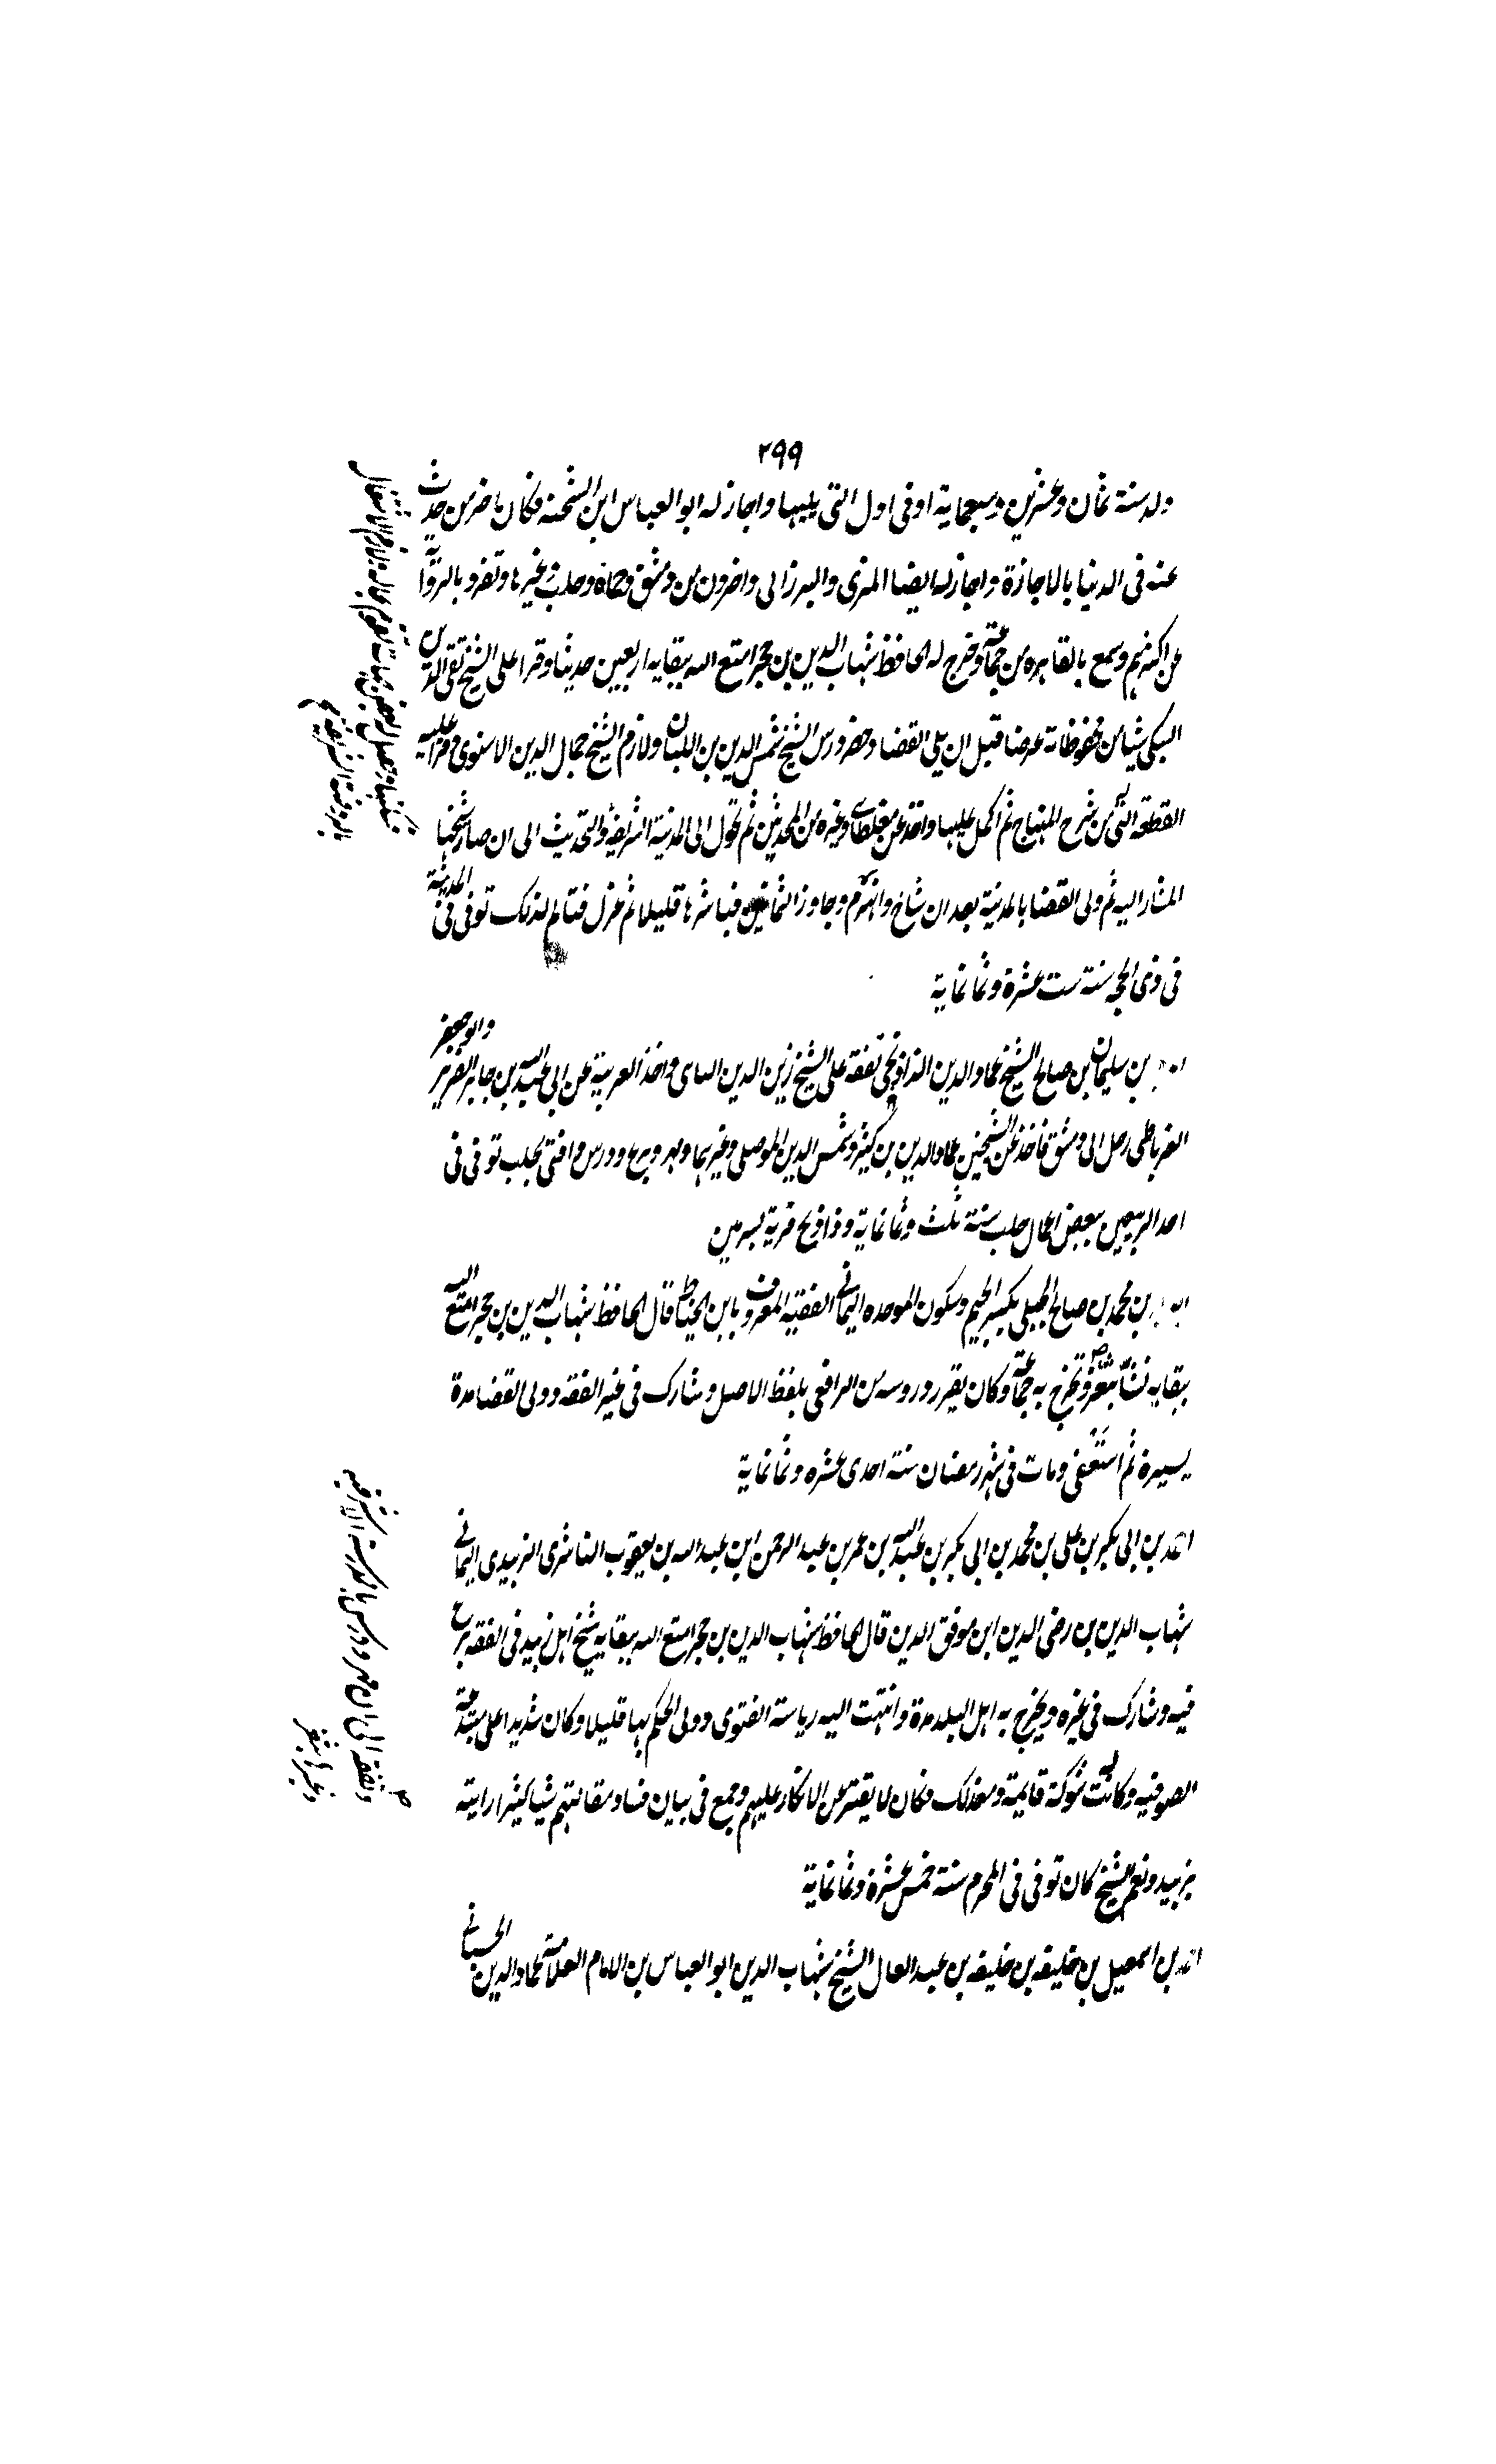 ٢٩٩
ولد سنة ثمان وعشرين وسبعماية او فى اول التى يليها واجاز له ابو العباس ابن الشحنة فكان اخر من حدث
عنه فى الدنيا بالاجازة واجاز له ايضا المزى والبرزالى واخرون من دمشق وحماة وحلب وغيرها وتفرد بالرواية
عن اكثرهم وسمع بالقاهره من جماعة وخرج له الحافظ شهاب الدين بن حجر امتع الله ببقايه اربعين حديثا وقرا على الشيخ تقى الدين
السبكى شيا من محفوظاته عرضا قبل ان يلى القضا وحضر درس الشيخ شمس الدين بن اللبان ولازم الشيخ جمال الدين الاسنوى وقرا عليه
القطعة التى من شرح المنهاج ثم اكمل عليها واخذ عن مغلطاى وغيره من المحدثين ثم تحول الى المدينة الشريفة والتحديث الى ان صار شيخها
المشار اليه ثم ولى القضا بالمدينة بعد ان شاخ وانهزم وجاوز الثمانين فباشرها قليلا ثم عزل فتالم لذلك توفى فى المدينة
فى ذى الحجه سنة ست عشرة وثمانماية
بن سليمان بن صالح الشيخ عماد الدين الذاذيخى تفقه على الشيخ زين الدين واخذ العربية عن ابى عبد الله بن جابر الضرير وابو جعفر
الغرناطى رحل الى دمشق فاخذ عن الشيخين عماد الدين بن كثير وشمس الدين الموصلى وغيرهما ومهر وبرع ودرس وافتى بحلب توفى فى
احد الربيعين ببعض اعمال حلب سنة ثلث وثمانماية وذاذيخ قرية بسرمين
بن محمد بن صالح الجبلى بكسر الجيم وسكون الموحده اليمانى الفقيه المعروف بابن الخياط قال الحافظ شهاب الدين بن حجر امتع الله
ببقايه نشا بتعز وتخرج به جماعة وكان يقرر دروسه من الرافعى بلفظ الاصل وشارك فى غير الفقه وولى القضا مدة
يسيرة ثم استعفى ومات فى شهر رمضان سنة احدى عشره وثمانماية
احمد بن ابى بكر بن على بن محمد بن ابى بكر بن عبد الله بن عمر بن عبد الرحمن ابن عبد الله بن يعقوب الناشرى الزبيدى اليمانى
شهاب الدين بن رضى الدين ابن موفق الدين قال الحافظ شهاب الدين بن حجر امتع الله ببقايه شيخ اهل زبيد فى الفقه برع
فيه وشارك فى غيره ويخرج به اهل البلد مدة وانتهت اليه رياسة الفتوى وولى الحكم بها قليلا وكان شديدا على مبتدعة
الصوفيه وكانت لهم شوكة قايمة ومع ذلك فكان لا يفتر عن الانكار عليهم وجمع فى بيان فساد مقالتهم شيا كثيرا رايته
بزبيد ونعم الشيخ كان توفى فى المحرم سنة خمس عشرة وثمانماية
احمد بن اسمعيل بن خليفه بن خليفه بن عبد العال الشيخ شهاب الدين ابو العباس بن الامام العلامة عماد الدين الحسبانى